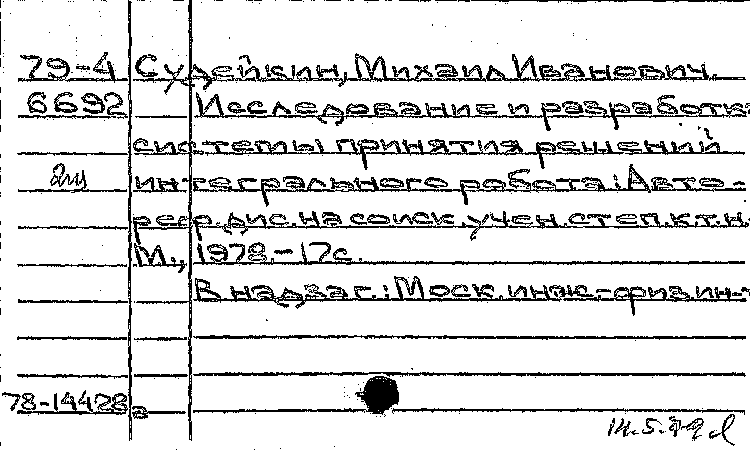 79-4 Судейкин, Михаил Иванович.
6692 Исследование и разработка
системы принятия решений
2щ интегрального робота: Авто-
реф. дис. на соиск. учен. степ. к.т.н.
М., 1978.-17с.
В надзаг.: Моск. инж.-физ. ин-т
78-14428 а
14.5.79